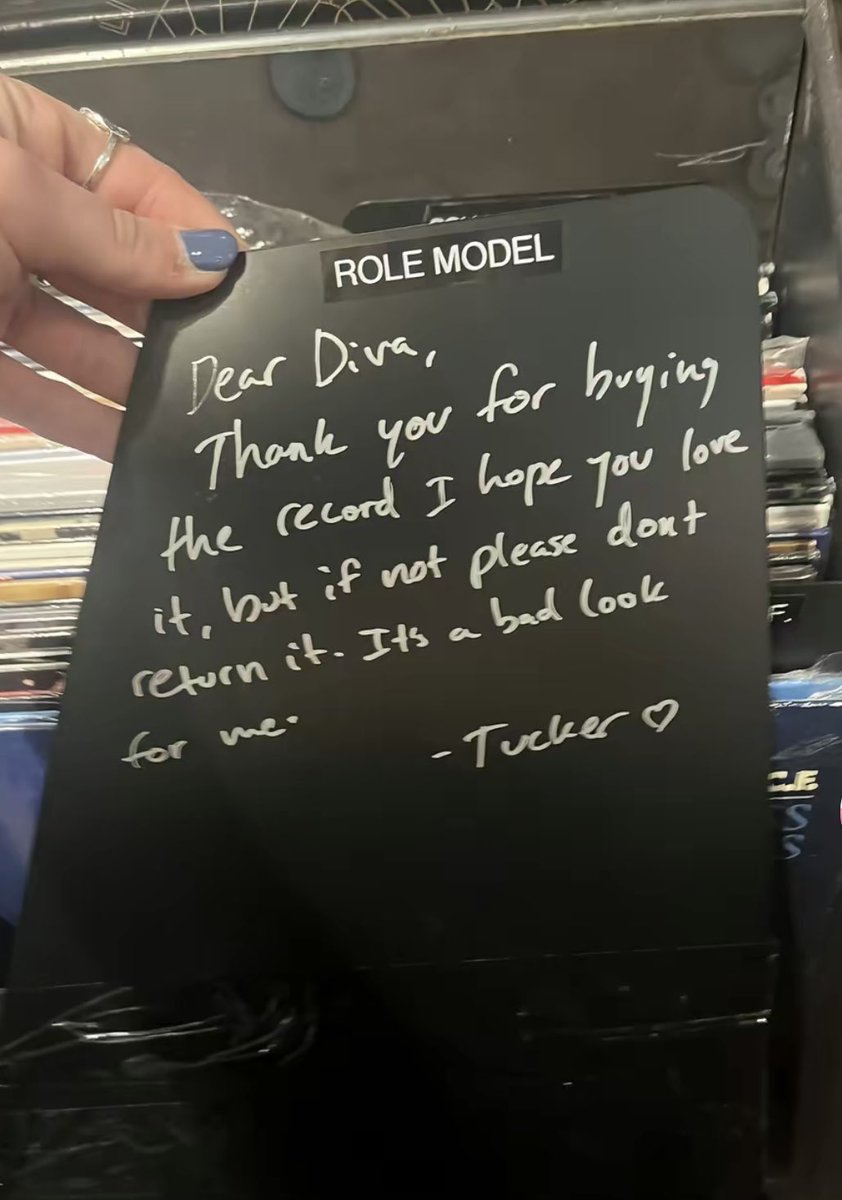 ROLE MODEL
Dear Diva,
Thank you for buying
the record I hope you love
it, but if not please dont
return it. Its a bad look
for me.
-Tucker ♡
F.
C.F.
S
S